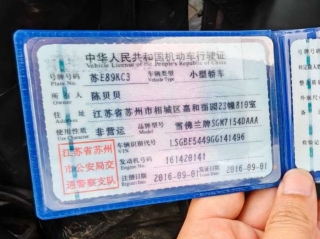 中华人民共和国机动车行驶证
Vehicle License of the People's Republic of China
号牌号码 苏E89KC3 车辆类型 小型轿车
Plate No. Vehicle Type
所有人 陈贝贝
Owner
住址 江苏省苏州市相城区嘉和丽园23幢810室
Address
使用性质 非营运 品牌型号 雪佛兰牌SGM7154DAAA
Use Character Model
江苏省苏州
市公安局交
通警察支队
车辆识别代号 LSGBE5449GG141496
VIN
发动机号码 161420141
Engine No.
注册日期 2016-09-01 2016-09-01